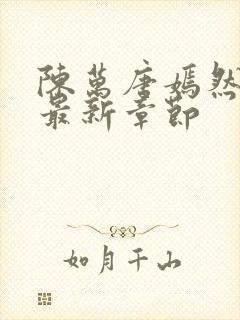 陳萬唐嫣然
最新章節
如月千山